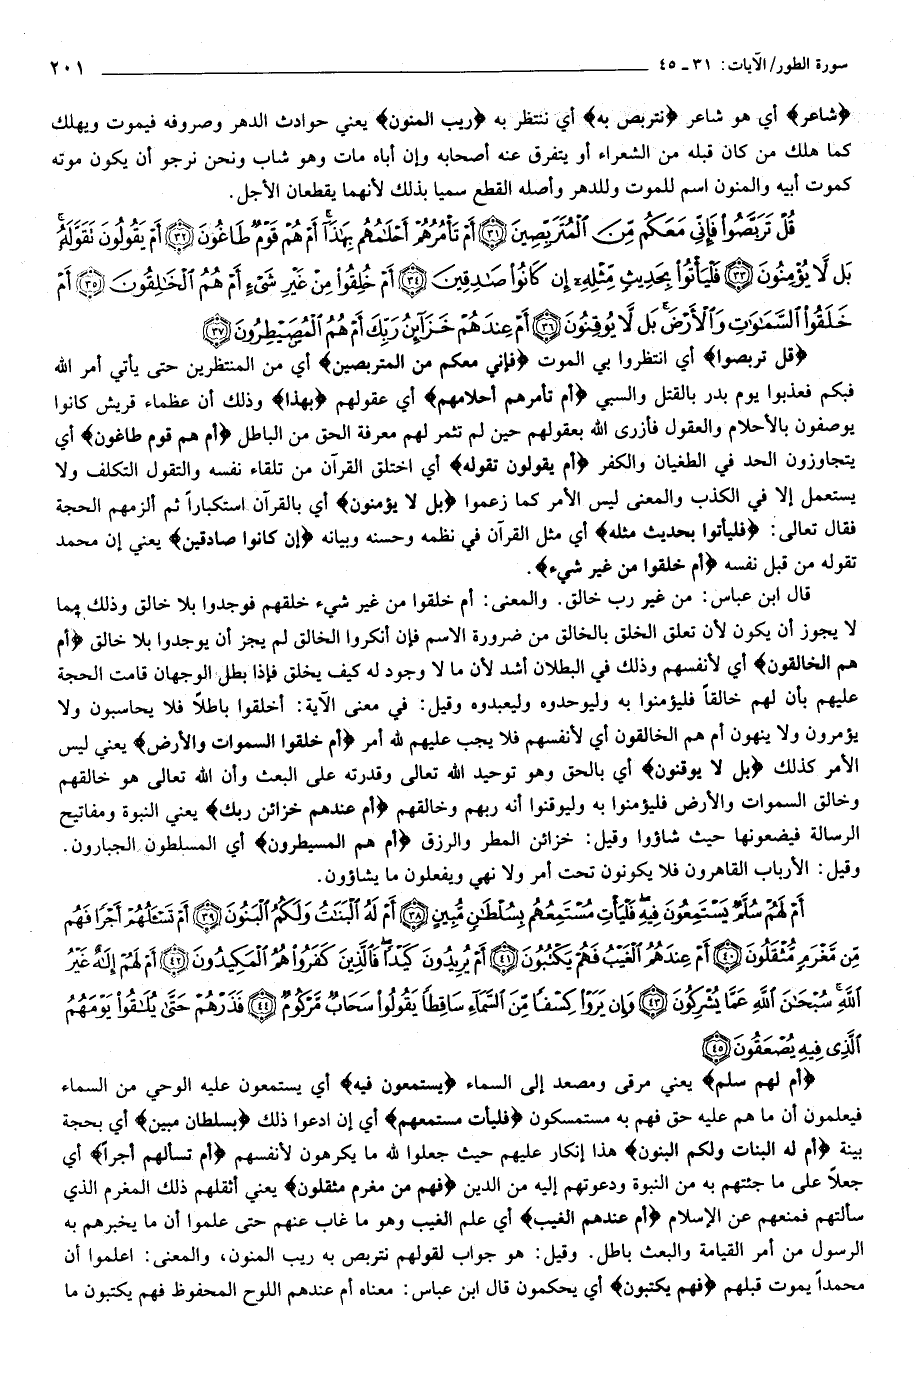 سورة الطور/ الآيات: ٣١ ـ ٤٥ ٢٠١
﴿شاعر﴾ أي هو شاعر ﴿نتربص به﴾ أي ننتظر به ﴿ريب المنون﴾ يعني حوادث الدهر وصروفه فيموت ويهلك
كما هلك من كان قبله من الشعراء أو يتفرق عنه أصحابه وإن أباه مات وهو شاب ونحن نرجو أن يكون موته
كموت أبيه والمنون اسم للموت وللدهر وأصله القطع سميا بذلك لأنهما يقطعان الأجل.
قُلْ تَرَبَّصُوا۟ فَإِنِّى مَعَكُم مِّنَ ٱلْمُتَرَبِّصِينَ ﴿٣١﴾ أَمْ تَأْمُرُهُمْ أَحْلَٰمُهُم بِهَٰذَآ ۚ أَمْ هُمْ قَوْمٌ طَاغُونَ ﴿٣٢﴾ أَمْ يَقُولُونَ نَقَوَّلَهُۥ ۚ
بَل لَّا يُؤْمِنُونَ ﴿٣٣﴾ فَلْيَأْتُوا۟ بِحَدِيثٍ مِّثْلِهِۦٓ إِن كَانُوا۟ صَٰدِقِينَ ﴿٣٤﴾ أَمْ خُلِقُوا۟ مِنْ غَيْرِ شَىْءٍ أَمْ هُمُ ٱلْخَٰلِقُونَ ﴿٣٥﴾ أَمْ
خَلَقُوا۟ ٱلسَّمَٰوَٰتِ وَٱلْأَرْضَ ۚ بَل لَّا يُوقِنُونَ ﴿٣٦﴾ أَمْ عِندَهُمْ خَزَآئِنُ رَبِّكَ أَمْ هُمُ ٱلْمُصَۣيْطِرُونَ ﴿٣٧﴾
﴿قل تربصوا﴾ أي انتظروا بي الموت ﴿فإني معكم من المتربصين﴾ أي من المنتظرين حتى يأتي أمر الله
فبكم فعذبوا يوم بدر بالقتل والسبي ﴿أم تأمرهم أحلامهم﴾ أي عقولهم ﴿بهذا﴾ وذلك أن عظماء قريش كانوا
يوصفون بالأحلام والعقول فأزرى الله بعقولهم حين لم تثمر لهم معرفة الحق من الباطل ﴿أم هم قوم طاغون﴾ أي
يتجاوزون الحد في الطغيان والكفر ﴿أم يقولون تقوله﴾ أي اختلق القرآن من تلقاء نفسه والتقول التكلف ولا
يستعمل إلا في الكذب والمعنى ليس الأمر كما زعموا ﴿بل لا يؤمنون﴾ أي بالقرآن استكباراً ثم ألزمهم الحجة
فقال تعالى: ﴿فليأتوا بحديث مثله﴾ أي مثل القرآن في نظمه وحسنه وبيانه ﴿إن كانوا صادقين﴾ يعني إن محمد
تقوله من قبل نفسه ﴿أم خلقوا من غير شيء﴾.
قال ابن عباس: من غير رب خالق. والمعنى: أم خلقوا من غير شيء خلقهم فوجدوا بلا خالق وذلك مما
لا يجوز أن يكون لأن تعلق الخلق بالخالق من ضرورة الاسم فإن أنكروا الخالق لم يجز أن يوجدوا بلا خالق ﴿أم
هم الخالقون﴾ أي لأنفسهم وذلك في البطلان أشد لأن ما لا وجود له كيف يخلق فإذا بطل الوجهان قامت الحجة
عليهم بأن لهم خالقاً فليؤمنوا به وليوحدوه وليعبدوه وقيل: في معنى الآية: أخلقوا باطلاً فلا يحاسبون ولا
يؤمرون ولا ينهون أم هم الخالقون أي لأنفسهم فلا يجب عليهم لله أمر ﴿أم خلقوا السموات والأرض﴾ يعني ليس
الأمر كذلك ﴿بل لا يوقنون﴾ أي بالحق وهو توحيد الله تعالى وقدرته على البعث وأن الله تعالى هو خالقهم
وخالق السموات والأرض فليؤمنوا به وليوقنوا أنه ربهم وخالقهم ﴿أم عندهم خزائن ربك﴾ يعني النبوة ومفاتيح
الرسالة فيضعونها حيث شاؤوا وقيل: خزائن المطر والرزق ﴿أم هم المسيطرون﴾ أي المسلطون الجبارون.
وقيل: الأرباب القاهرون فلا يكونون تحت أمر ولا نهي ويفعلون ما يشاؤون.
أَمْ لَهُمْ سُلَّمٌ يَسْتَمِعُونَ فِيهِ ۖ فَلْيَأْتِ مُسْتَمِعُهُم بِسُلْطَٰنٍ مُّبِينٍ ﴿٣٨﴾ أَمْ لَهُ ٱلْبَنَٰتُ وَلَكُمُ ٱلْبَنُونَ ﴿٣٩﴾ أَمْ تَسْـَٔلُهُمْ أَجْرًا فَهُم
مِّن مَّغْرَمٍ مُّثْقَلُونَ ﴿٤٠﴾ أَمْ عِندَهُمُ ٱلْغَيْبُ فَهُمْ يَكْتُبُونَ ﴿٤١﴾ أَمْ يُرِيدُونَ كَيْدًا ۖ فَٱلَّذِينَ كَفَرُوا۟ هُمُ ٱلْمَكِيدُونَ ﴿٤٢﴾ أَمْ لَهُمْ إِلَٰهٌ غَيْرُ
ٱللَّهِ ۚ سُبْحَٰنَ ٱللَّهِ عَمَّا يُشْرِكُونَ ﴿٤٣﴾ وَإِن يَرَوْا۟ كِسْفًا مِّنَ ٱلسَّمَآءِ سَاقِطًا يَقُولُوا۟ سَحَابٌ مَّرْكُومٌ ﴿٤٤﴾ فَذَرْهُمْ حَتَّىٰ يُلَٰقُوا۟ يَوْمَهُمُ
ٱلَّذِى فِيهِ يُصْعَقُونَ ﴿٤٥﴾
﴿أم لهم سلم﴾ يعني مرقى ومصعد إلى السماء ﴿يستمعون فيه﴾ أي يستمعون عليه الوحي من السماء
فيعلمون أن ما هم عليه حق فهم به مستمسكون ﴿فليأت مستمعهم﴾ أي إن ادعوا ذلك ﴿بسلطان مبين﴾ أي بحجة
بينة ﴿أم له البنات ولكم البنون﴾ هذا إنكار عليهم حيث جعلوا لله ما يكرهون لأنفسهم ﴿أم تسألهم أجراً﴾ أي
جعلاً على ما جئتهم به من النبوة ودعوتهم إليه من الدين ﴿فهم من مغرم مثقلون﴾ يعني أثقلهم ذلك المغرم الذي
سألتهم فمنعهم عن الإسلام ﴿أم عندهم الغيب﴾ أي علم الغيب وهو ما غاب عنهم حتى علموا أن ما يخبرهم به
الرسول من أمر القيامة والبعث باطل. وقيل: هو جواب لقولهم نتربص به ريب المنون، والمعنى: اعلموا أن
محمداً يموت قبلهم ﴿فهم يكتبون﴾ أي يحكمون قال ابن عباس: معناه أم عندهم اللوح المحفوظ فهم يكتبون ما